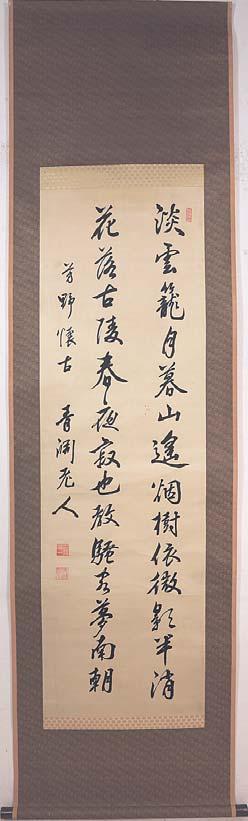 淡雲籠月暮山遥烟樹依微影半消
花落古陵春夜寂也教騒客夢南朝
芳野懐古 青淵老人